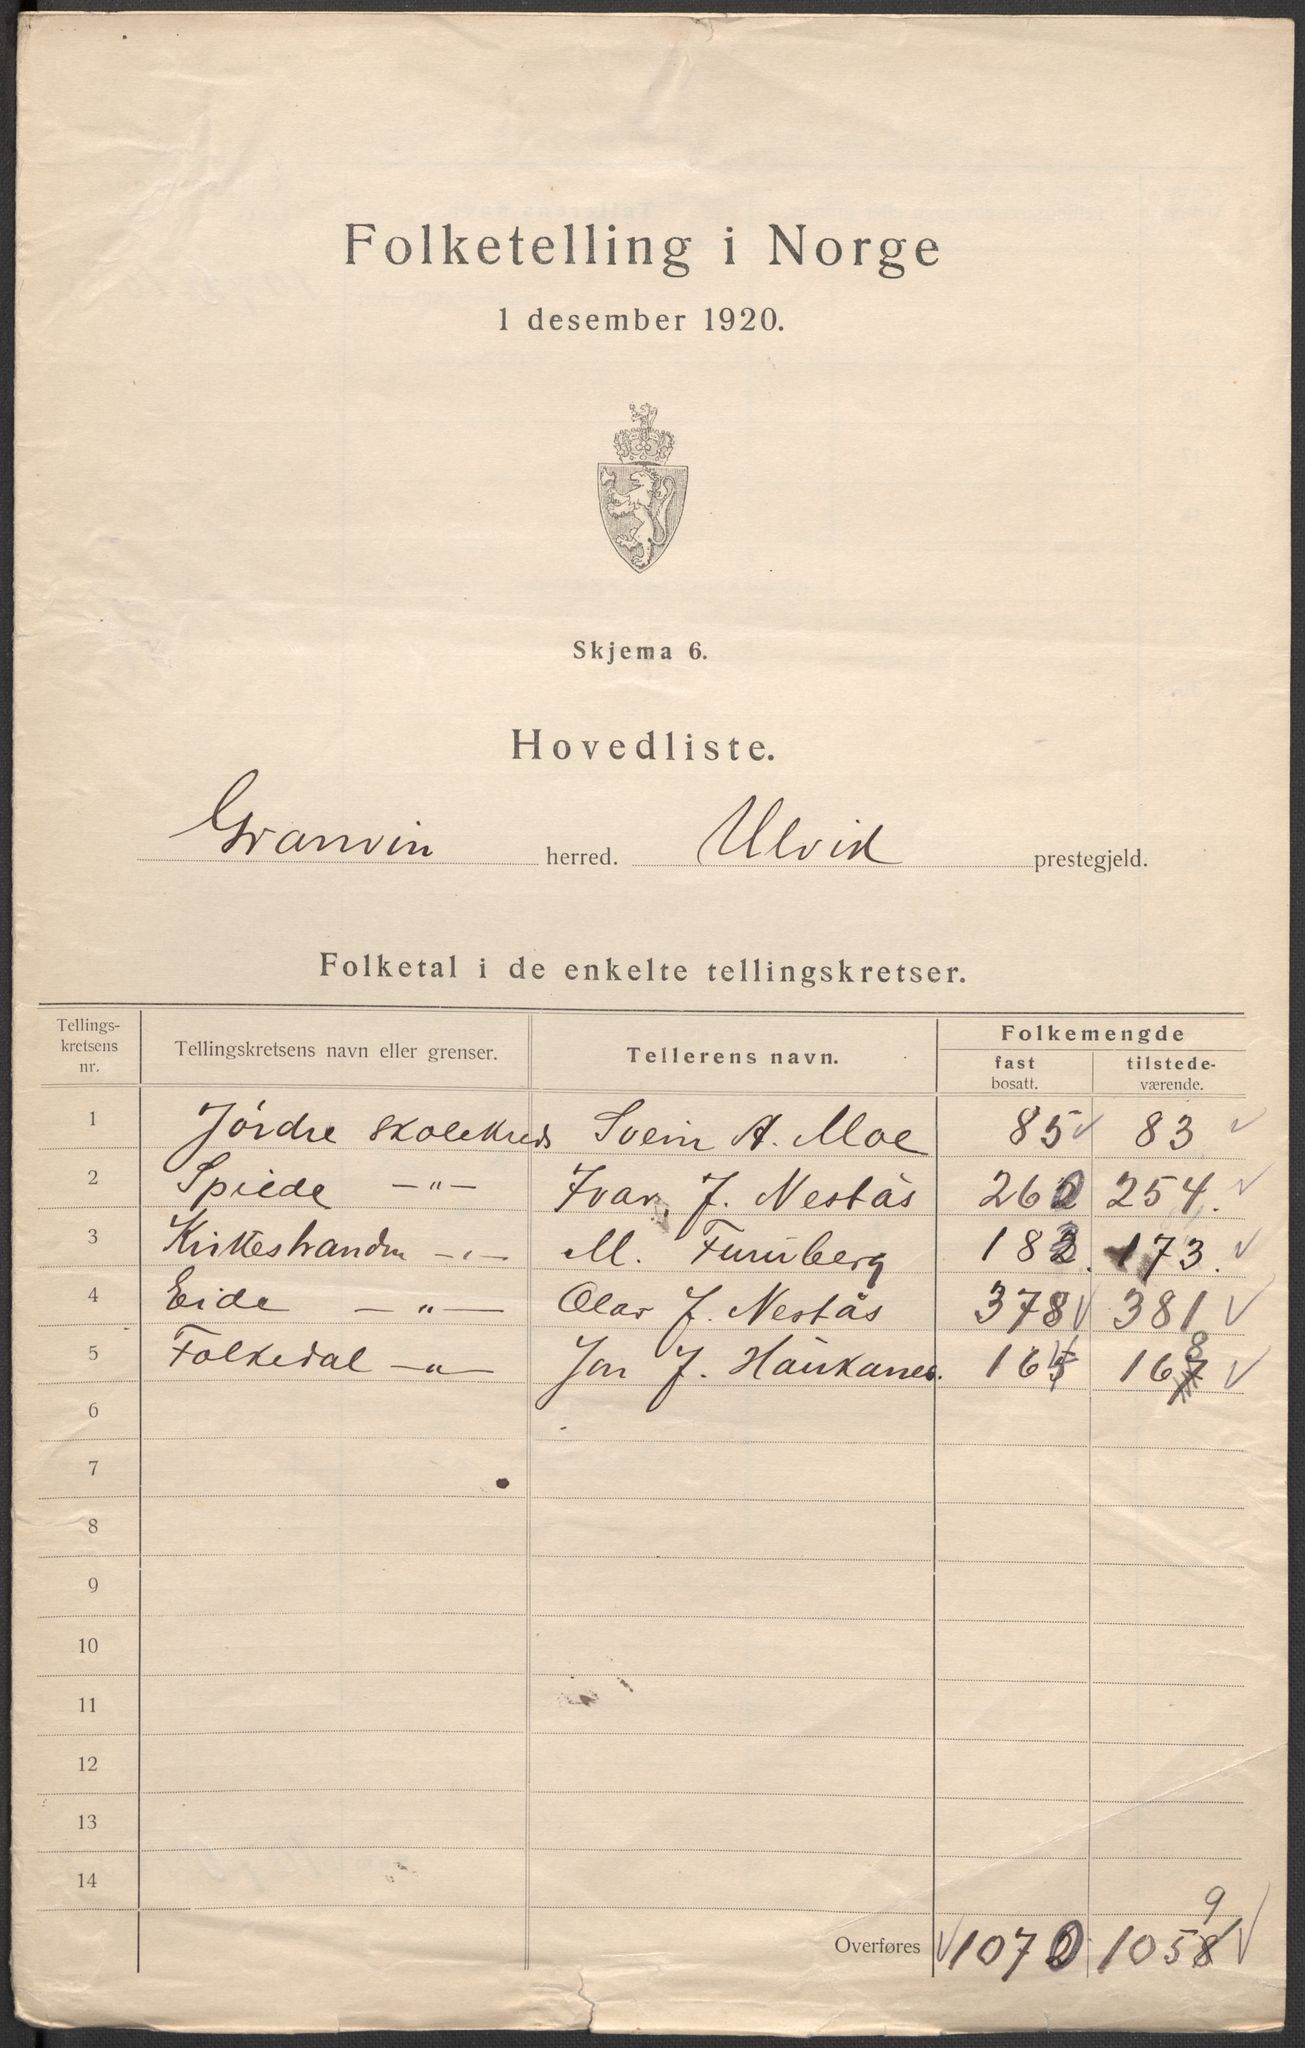 Folketelling i Norge
1 desember 1920.
Skjema 6.
Hovedliste.
Granvin herred. Ulvik prestegjeld.
Folketal i de enkelte tellingskretser.
Tellings-
kretsens
nr.
Tellingskretsens navn eller grenser.
Tellerens navn.
Folkemengde
fast
bosatt.
tilstede-
værende.
1 Jördre skolekreds Svein A. Moe 85 ✓ 83 ✓
2 Spilde —"— Ivar J. Nestås 260 254. ✓
3 Kirkestranden —"— M. Furuberg 183. 173. ✓
4 Eide —"— Olav J. Nestås 378 ✓ 381 ✓
5 Folkedal —"— Jon J. Haukanes. 164 168 ✓
6
7
8
9
10
11
12
13
14
Overføres ✓ 1070 1059 ✓